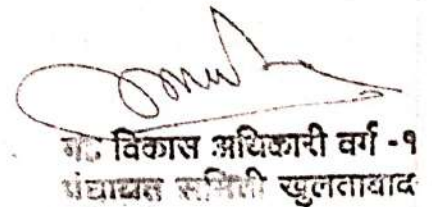 गट विकास अधिकारी वर्ग -१
पंचायत समिती खुलताबाद